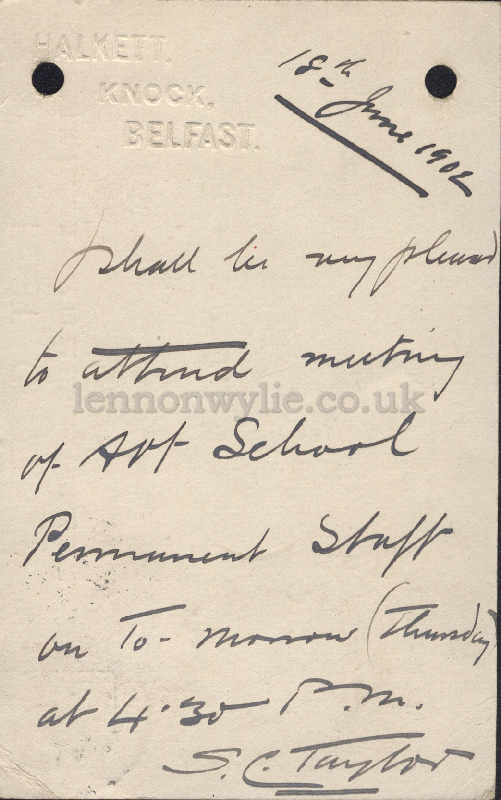 HALKETT.
KNOCK.
BELFAST.
18th June 1902
I shall be very pleased
to attend meeting
of Art School
Permanent Staff
on To-morrow (Thursday)
at 4.30 P.M.
S. C. Taylor
lennonwylie.co.uk